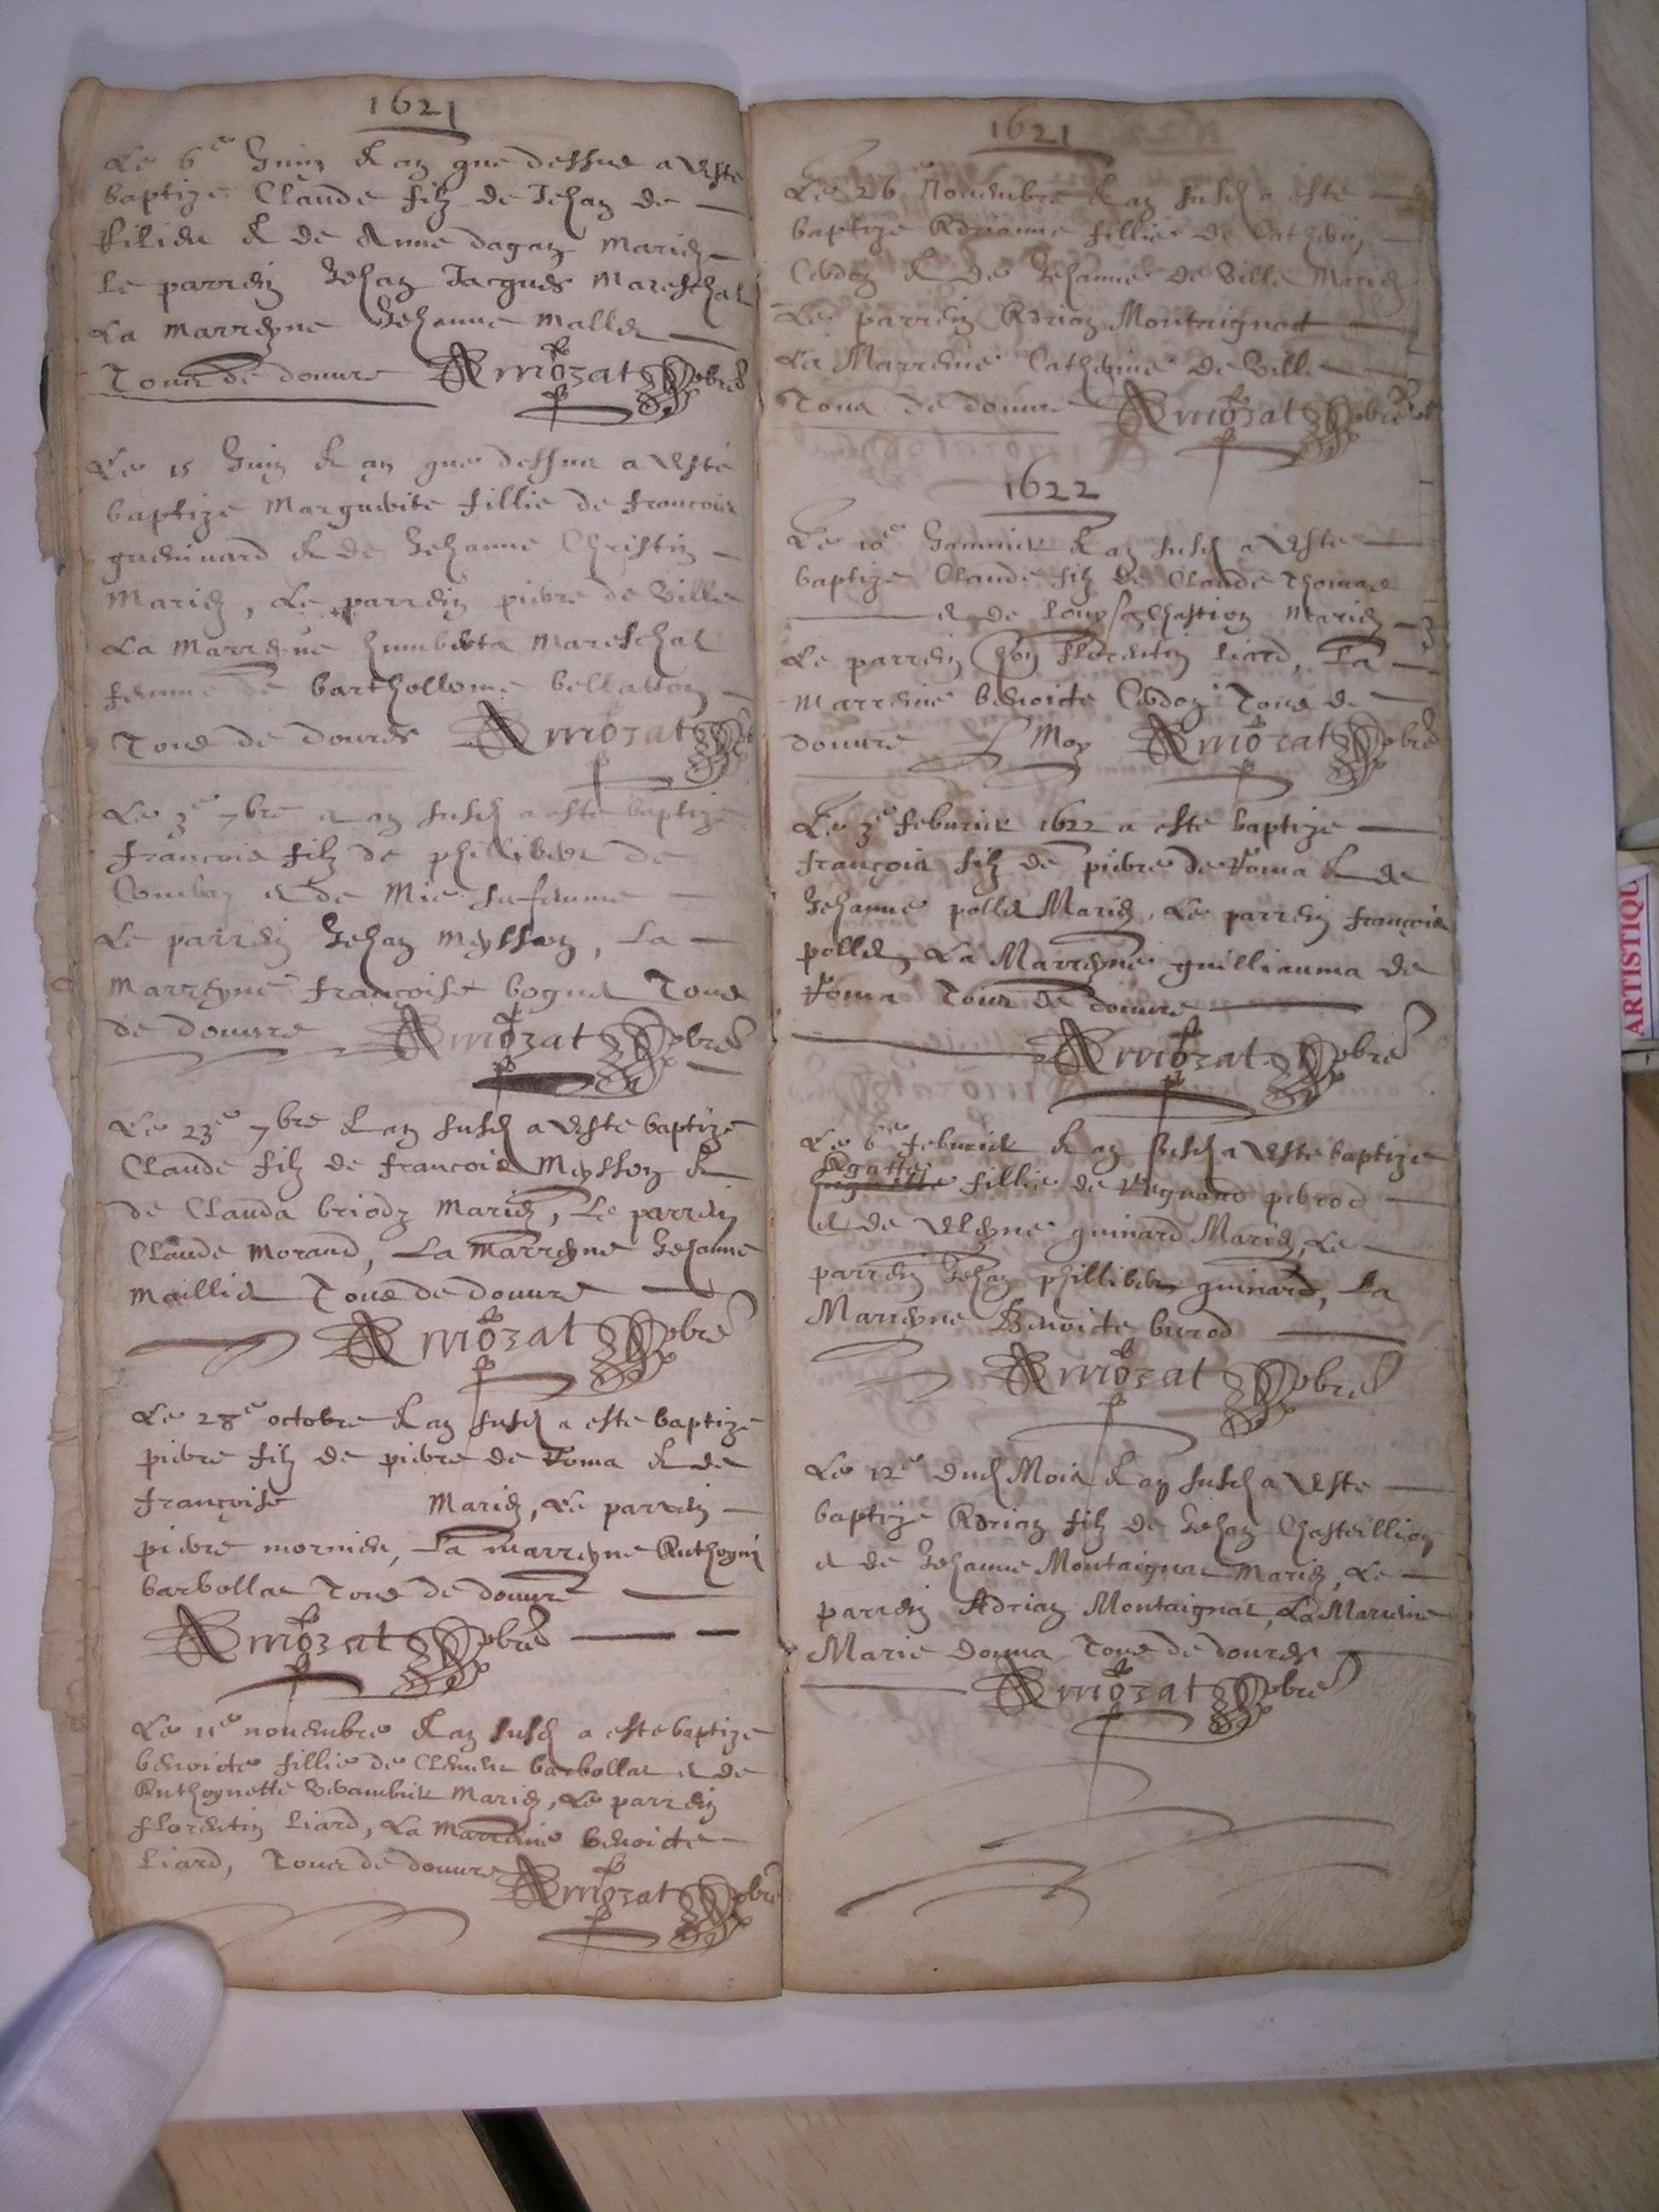 1621
Le 6e Juing & an que dessus a este
baptize Claude filz de Jehan de
& de Anne dagan Mariez
Le parrein Jehan Jacques Mareschal
La Marreyne Jehanne Mallet
Tous de douvre Armozat pbre
Le 15 Juing & an que dessus a esté
baptize Marguerite fillie de francois
guerinard & de Jehanne Christin
Mariez, Le parrein pierre de Ville
La Marreyne humberta Mareschal
femme de barthollome bellatton
Tous de douvres Armozat
Le 3e 7bre & an susd a este baptize
francois filz de phillibert de
Combaz et de Mie sa femme
Le parrein Jehan Meysson, La
Marreyne françoise bogne Tous
de douvre Armozat pbre
Le 23e 7bre & an susd a este baptize
Claude filz de francois Meysson &
de Clauda briodz Mariez, Le parrein
Claude Morand, La Marreyne Jehanne
Maillie Tous de douvre
Armozat pbre
Le 28e octobre & an susd a este baptize
pierre filz de pierre de Roma & de
françoise Mariez, Le parrein
pierre mornieu, La marreyne Anthoyni
barbollat Tous de douvre
Armozat pbre
Le 11e novembre & an susd a este baptize
benoicte fillie de Clement barbollat et de
Anthoynette Mariez, Le parrein
florentin Liard, La Marreine benoicte
Liard, Tous de douvre Armozat pbre
1621
Le 26 Novembre & an susd a este
baptize Adrianne fillie de Cathelin
Cerdon & de Jehanne de Ville Mariez
Le parrein Adrian Montaignat
La Marreine Catherine de Ville
Tous de douvre Armozat pbre
1622
Le 10e Janvier & an susd a este
baptize Claude filz de Claude Thomas
et de Mariez
Le parrein hon florentin Liard, La
Marreine benoicte Cerdon Tous de
douvre Moy Armozat pbre
Le 3e febvrier 1622 a este baptize
françois filz de pierre de Roma & de
Jehanne pollet Mariez, Le parrein françois
pollet, La Marreyne guilliauma de
Roma Tous de douvre
Armozat pbre
Le 6e febvrier & an susd a este baptize
Agatte fillie de pebrod
et de guinard Mariez, Le
parrein Jehan phillibert guinard, La
Marreyne Benoicte burod
Armozat pbre
Le 12e dud Mois & an susd a este
baptize Adrian filz de Jehan Chastillion
et de Jehanne Montaignat Mariez, Le
parrein Adrian Montaignat, La Marreine
Marie donna Tous de douvres
Armozat pbre
ARTISTIQU